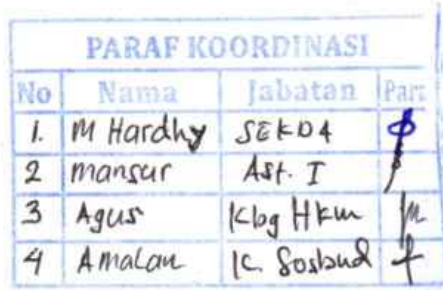 PARAF KOORDINASI
No Nama Jabatan Para
1. M Hardhy SEKDA
2 Mansur Ast. I
3 Agus Kbg Hkum
4 Amalan K. Sosbud